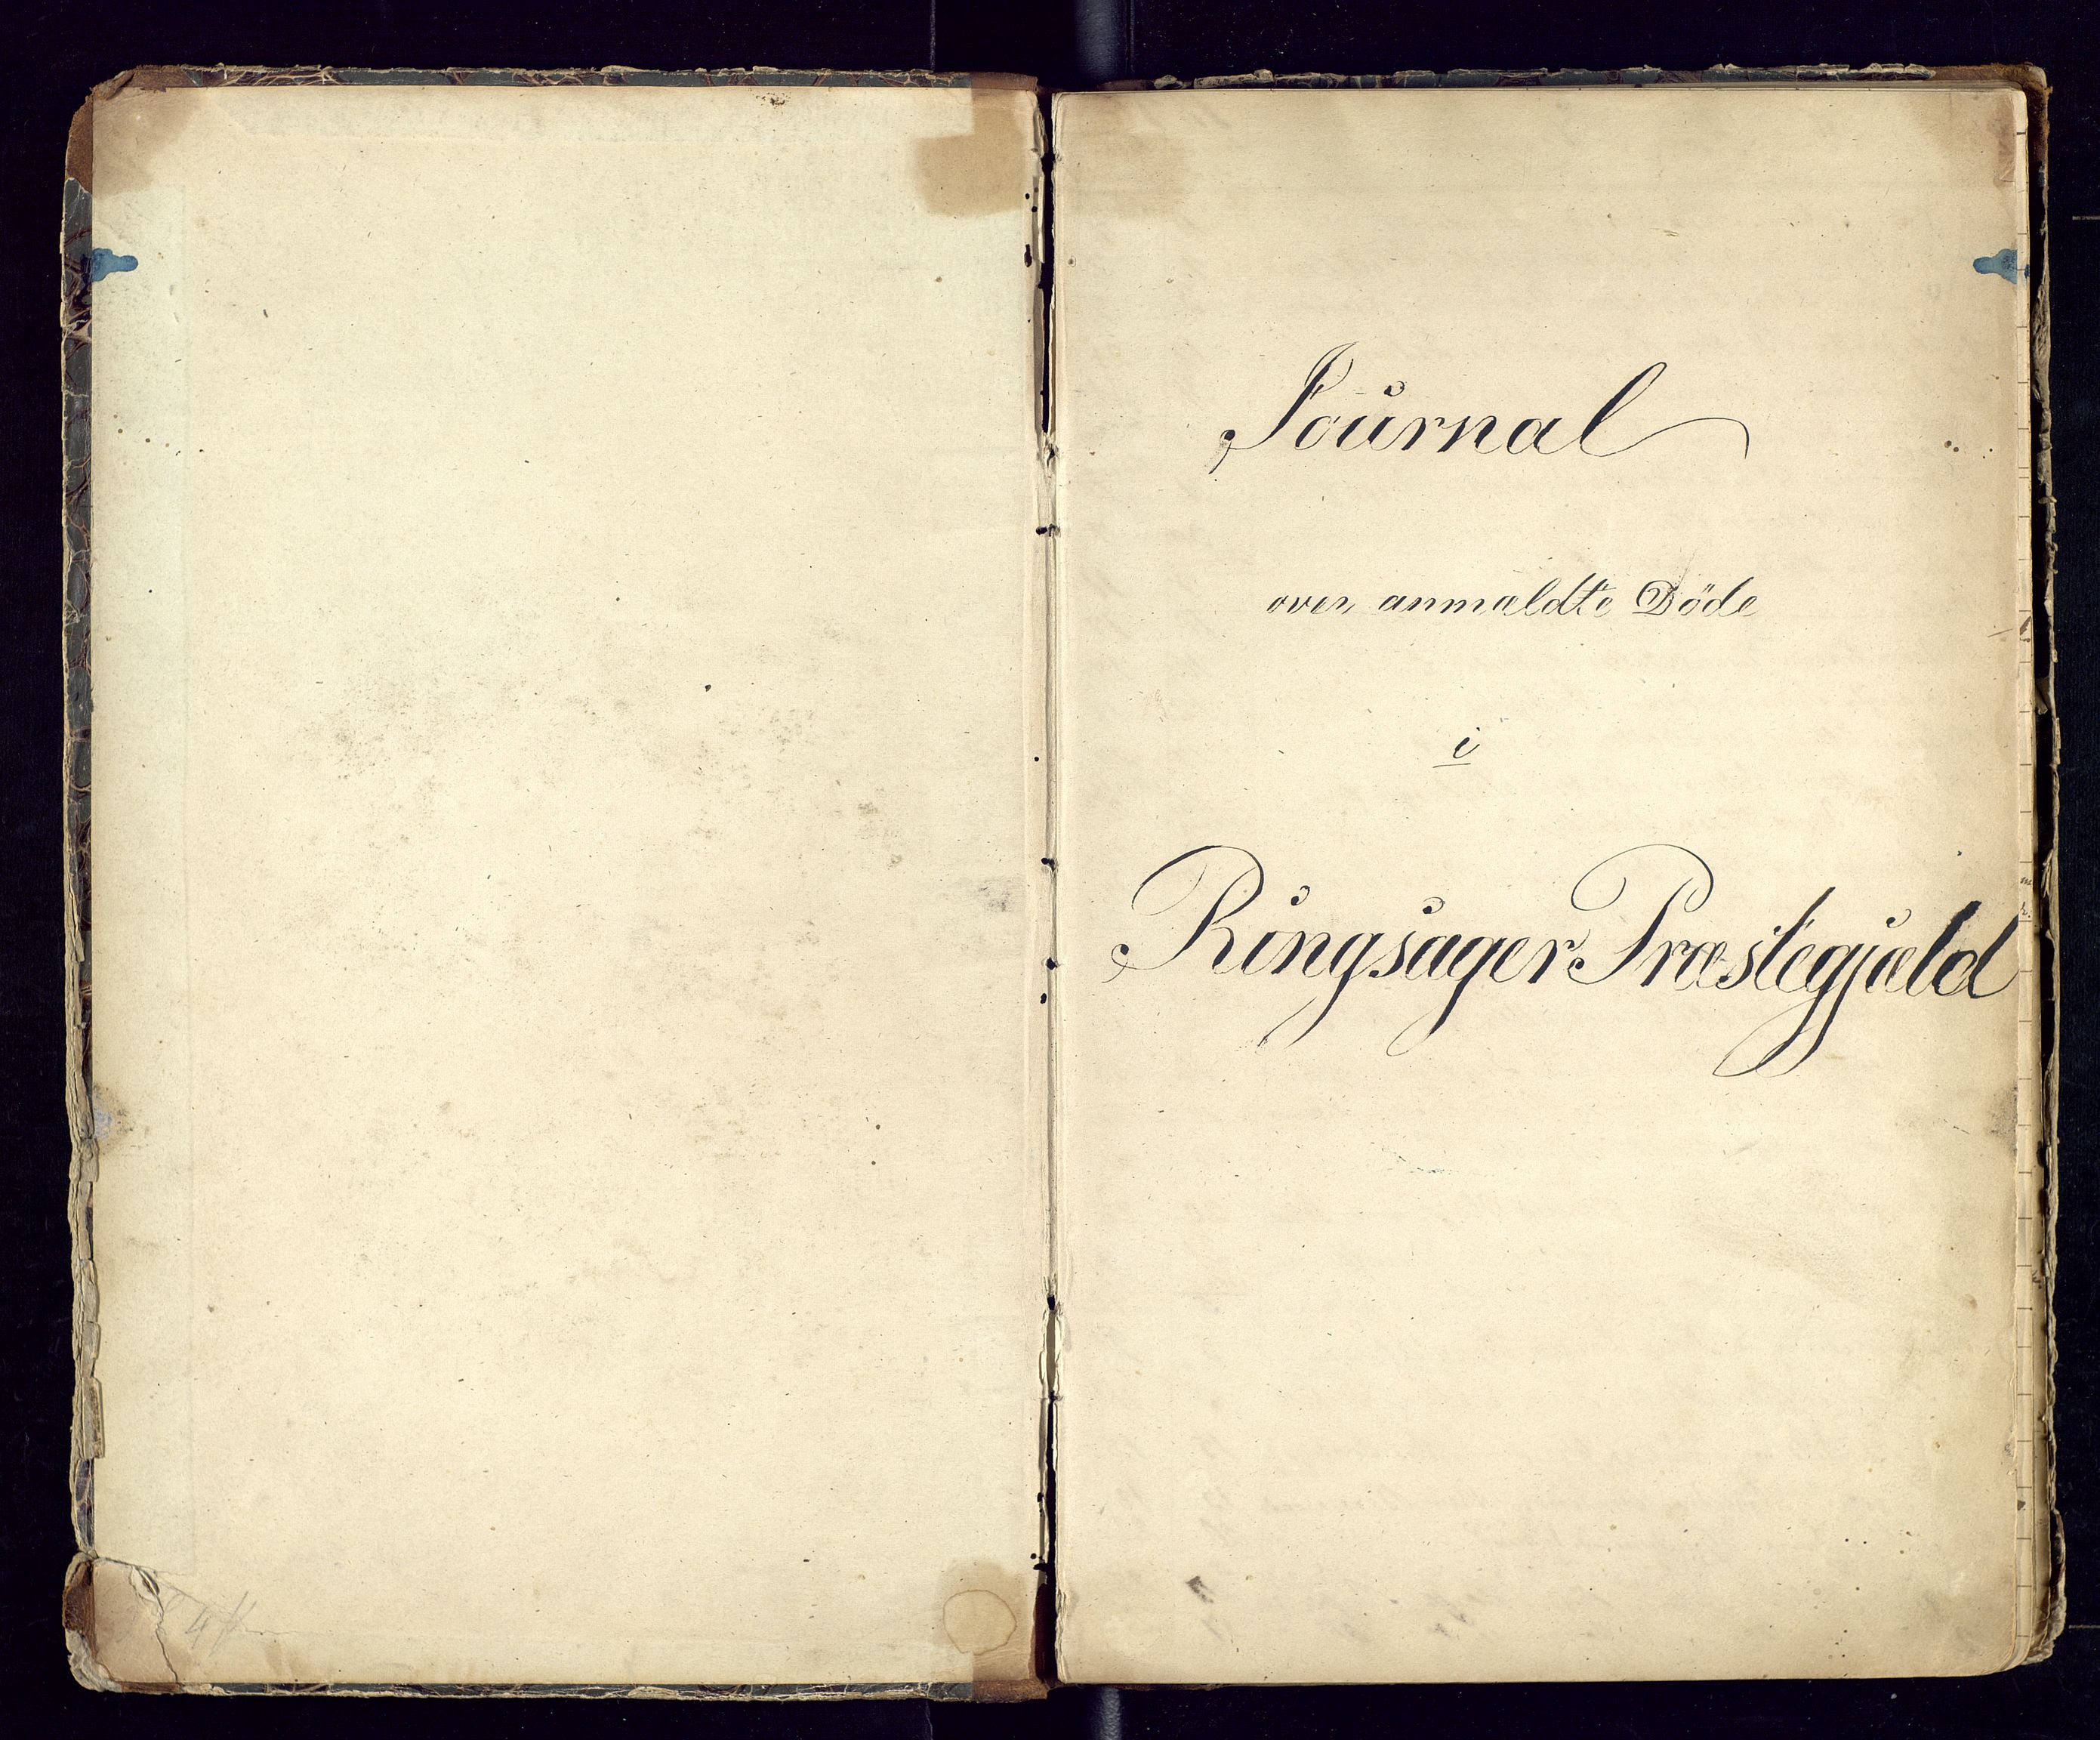 Journal
over anmeldte Döde
i
Ringsager Præstegjæld